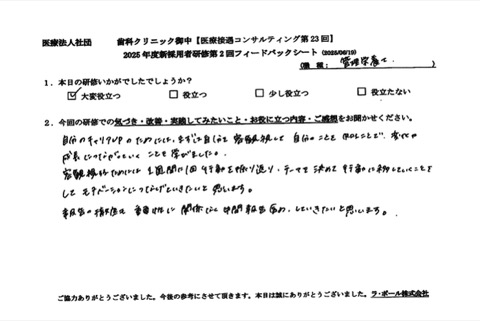 医療法人社団　　歯科クリニック御中【医療接遇コンサルティング第23回】
2025年度新採用者研修第2回フィードバックシート（2025/06/19）
（職　種：　管理栄養士　）
1．本日の研修いかがでしたでしょうか？
☑ 大変役立つ　□ 役立つ　□ 少し役立つ　□ 役立たない
2．今回の研修での気づき・改善・実践してみたいこと・お役に立つ内容・ご感想をお聞かせください。
自分のキャリアUPのためには、まずは自分を客観視して自分のことを知ることで、
成長につながっていくことを学びました。
客観視のためには1週間に1回行動を振り返り、テーマを決めて行動に移していくことを
してモチベーションにつなげていきたいと思います。
報告の精度は重要性に関係なく中間報告含め、していきたいと思います。
ご協力ありがとうございました。今後の参考にさせて頂きます。本日は誠にありがとうございました。ラ・ポール株式会社